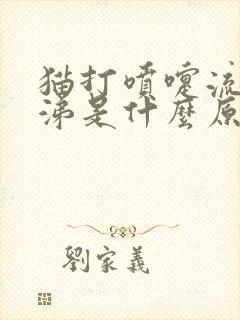 猫打噴嚏流
涕是什麼原
劉家義